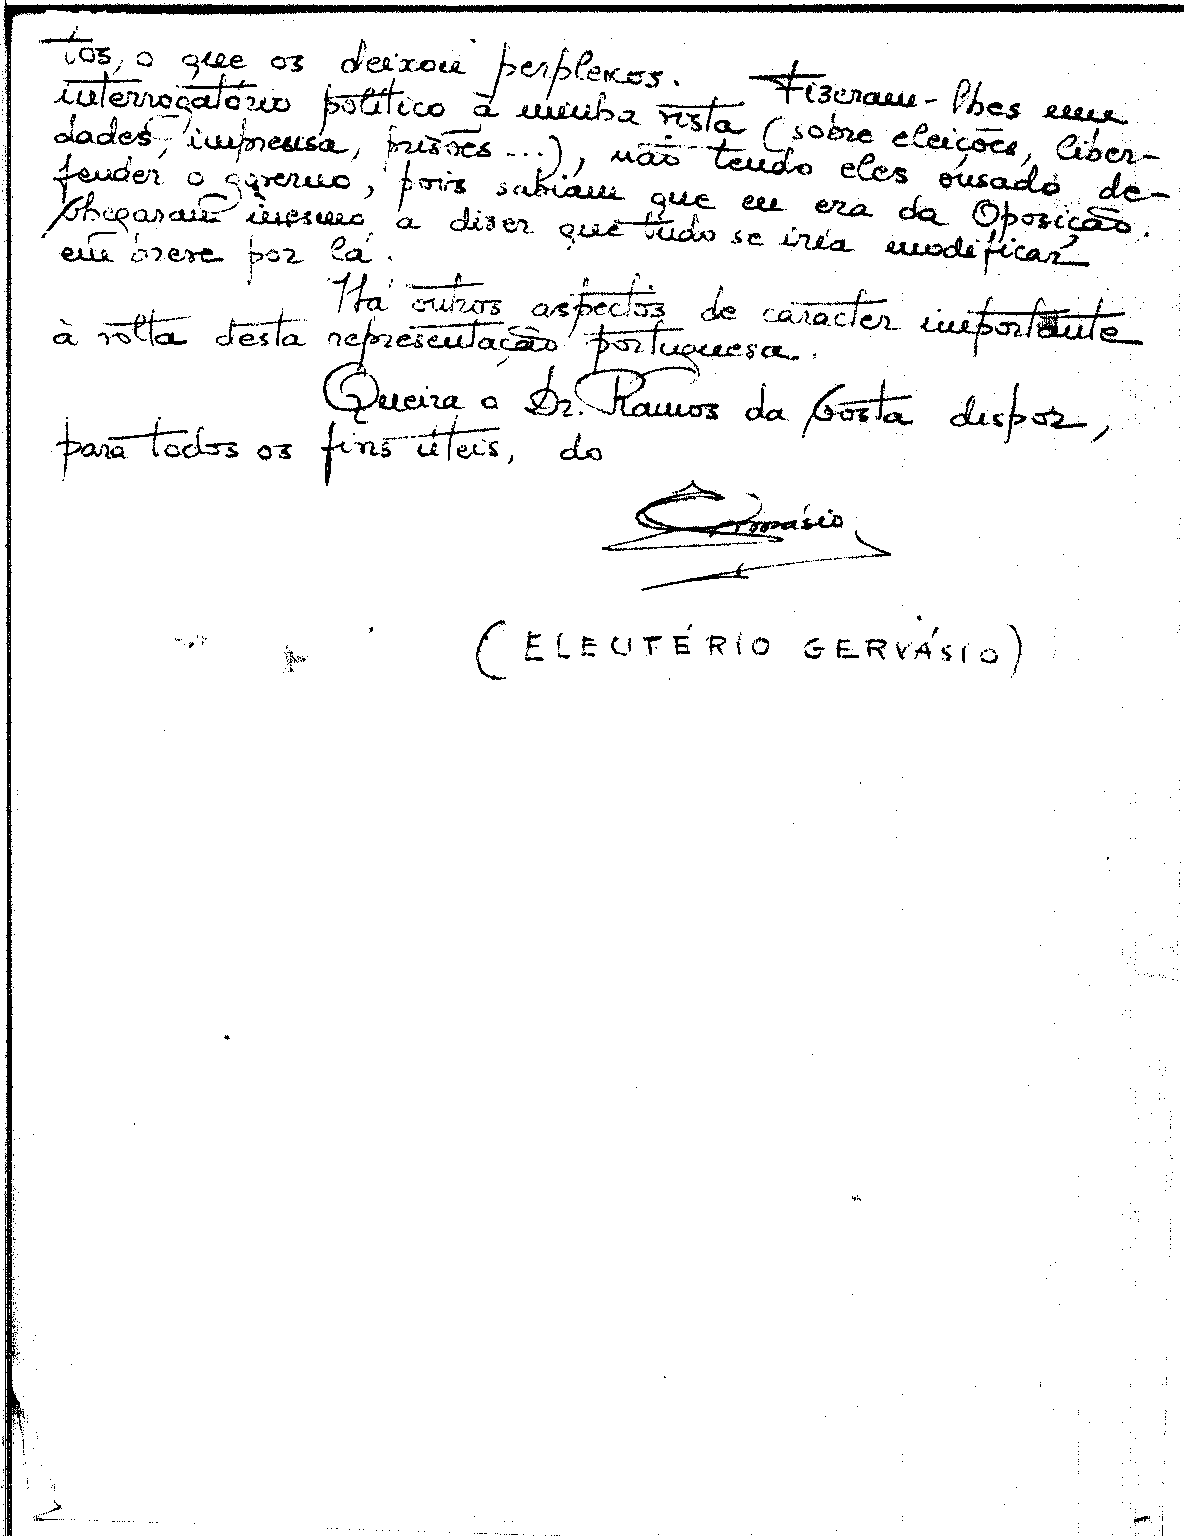 tos, o que os deixou perplexos. Fizeram-lhes um
interrogatório político à minha vista (sobre eleições, liber-
dades, imprensa, prisões...), não tendo eles ousado de-
fender o governo, pois sabiam que eu era da Oposição.
Chegaram mesmo a dizer que tudo se iria modificar
em breve por lá.
Há outros aspectos de carácter importante
à volta desta representação portuguesa.
Queira o Dr. Ramos da Costa dispor,
para todos os fins úteis, do
Gervásio
(ELEUTÉRIO GERVÁSIO)